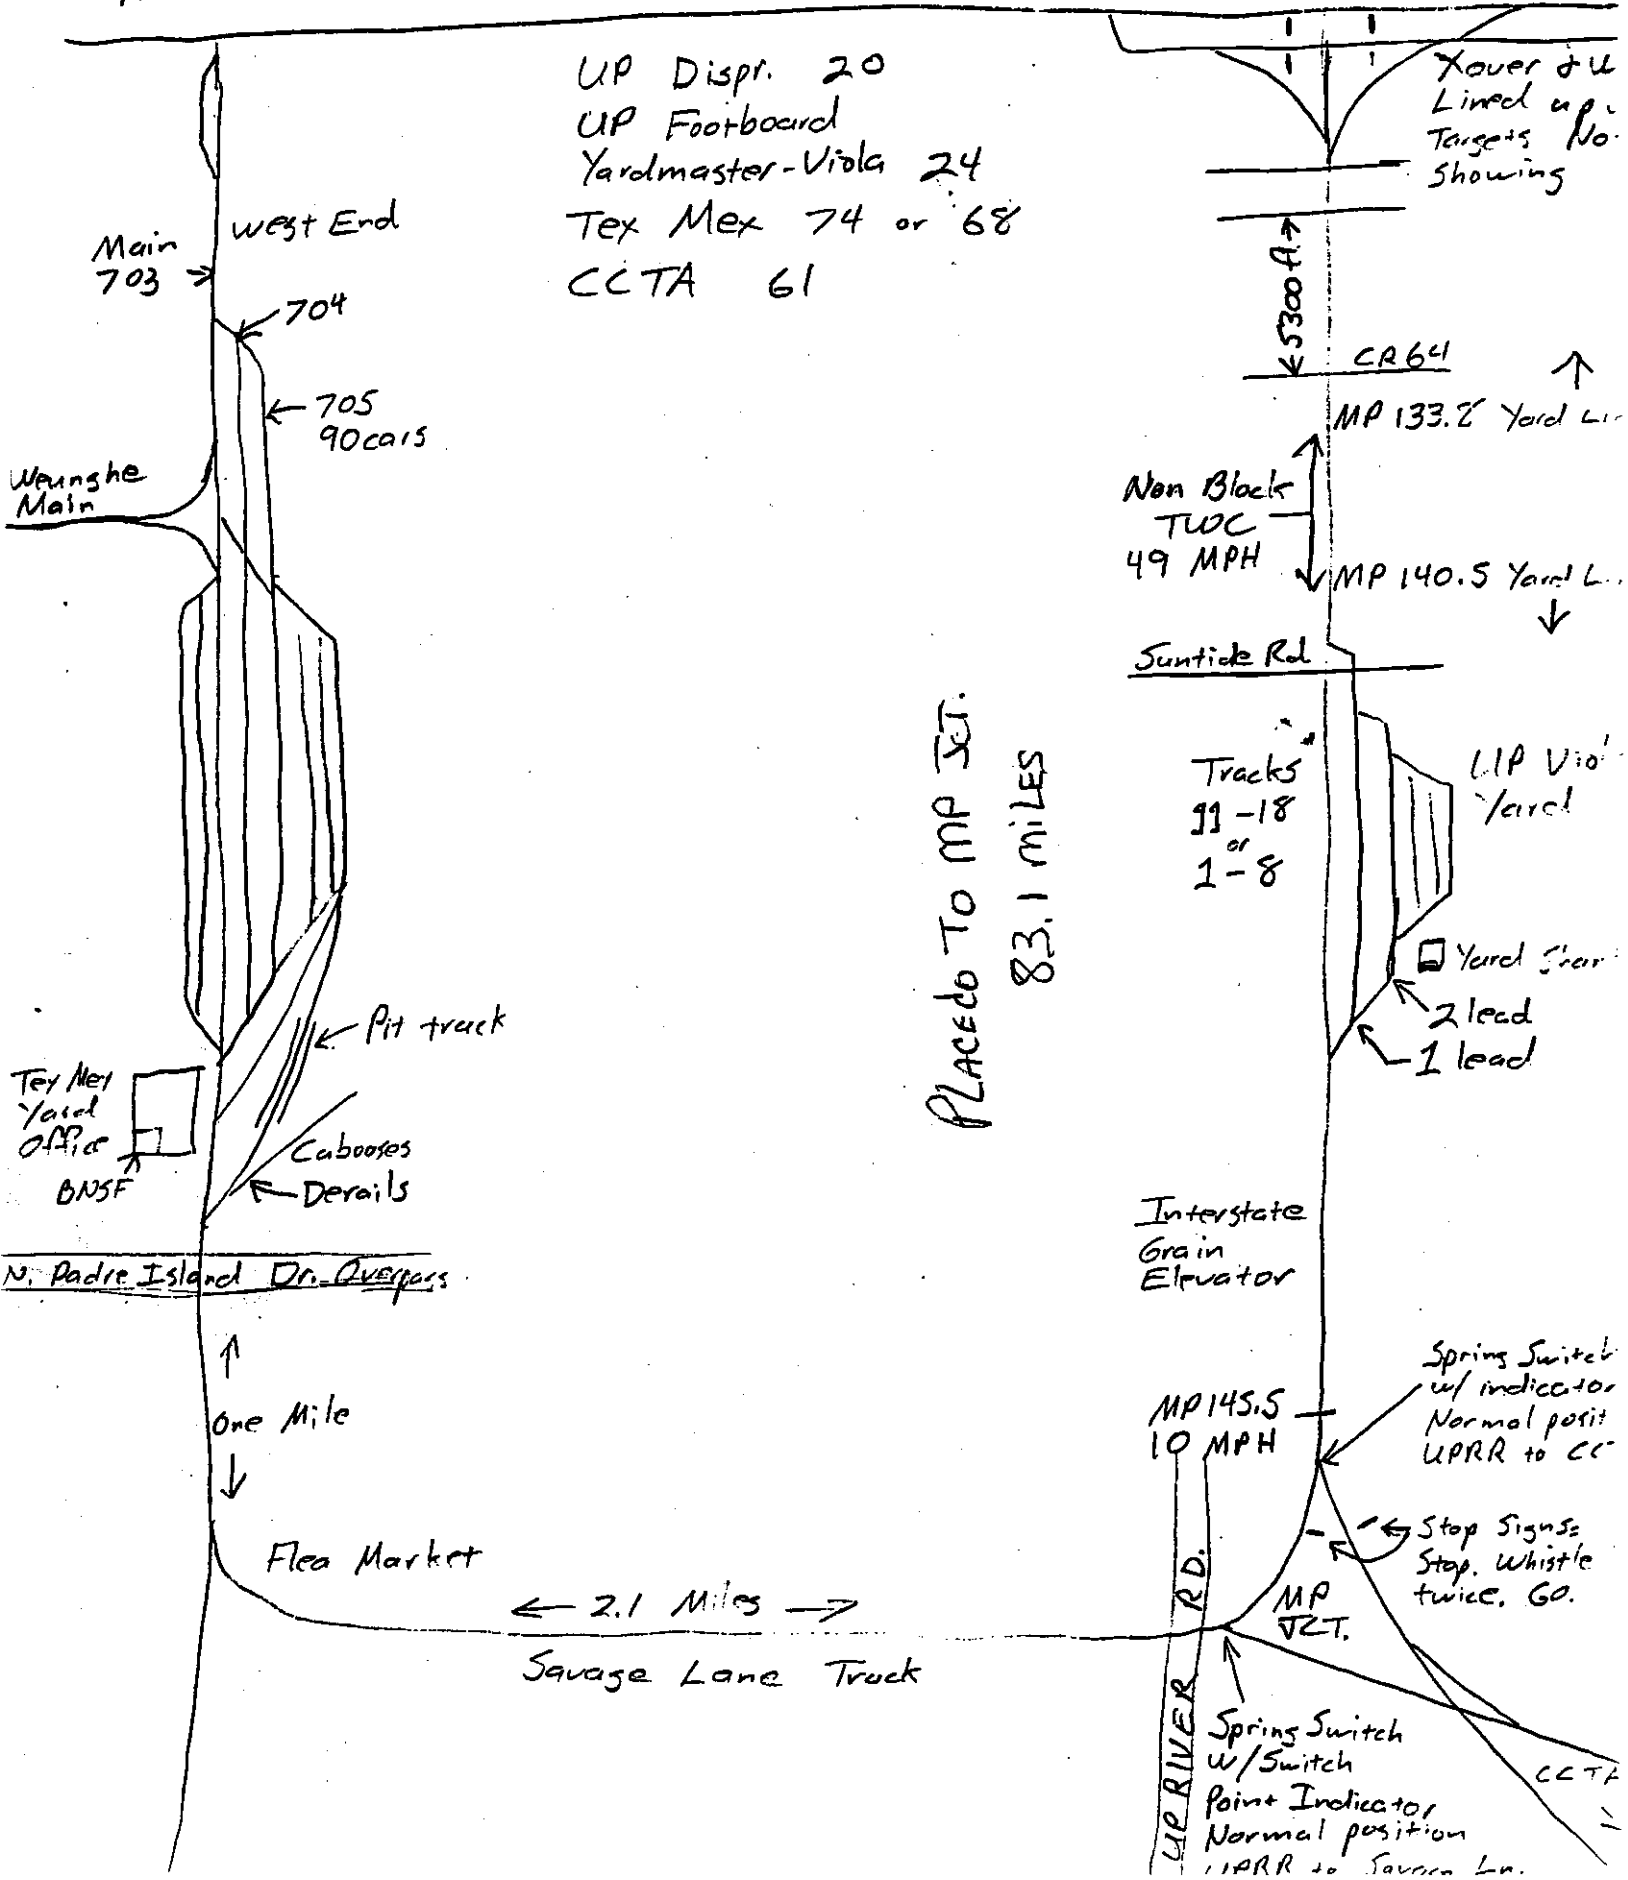 UP Dispr. 20
UP Footboard
Yardmaster-Viola 24
Tex Mex 74 or 68
CCTA 61
West End
Main
703
704
705
90cars
Main
Tex Mex
Yard
Office
BNSF
Pit track
Cabooses
Derails
N. Padre Island Dr. Overpass
One Mile
Flea Market
2.1 Miles
Savage Lane Track
PLACEDO TO MP JCT.
83.1 MILES
Xover &
Lined up
Targets No
Showing
5300 ft.
CR64
MP 133.2 Yard
Non Block
TWC
49 MPH
MP 140.5 Yard
Suntide Rd
Tracks
11-18
or
1-8
UP
Yard
Yard
2 lead
1 lead
Interstate
Grain
Elevator
MP 145.5
10 MPH
Spring Switch
w/ indicator
Normal posit
UPRR to CC
Stop Signs
Stop. Whistle
twice. GO.
MP
JCT.
UP RIVER RD.
Spring Switch
W/Switch
Point Indicator
Normal position
UPRR to Ln.
CCTA